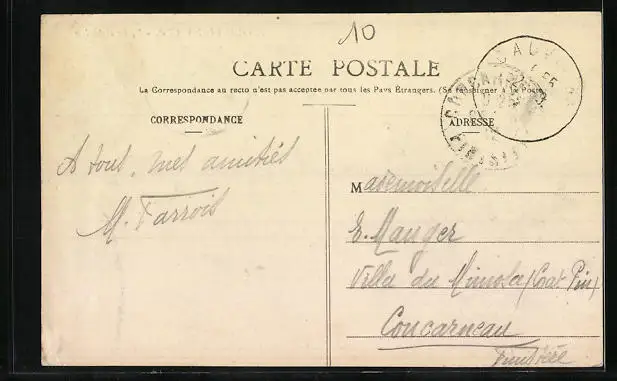 10
CARTE POSTALE
La Correspondance au recto n'est pas acceptée par tous les Pays Étrangers. (Se renseigner à la Poste)
CORRESPONDANCE
ADRESSE
CONCARNEAU
FINISTERE
A tous, mes amitiés
M. Farrois
Mademoiselle
E. Mauger
Villa du Mimosa (Cat. Pin)
Concarneau
Finistère